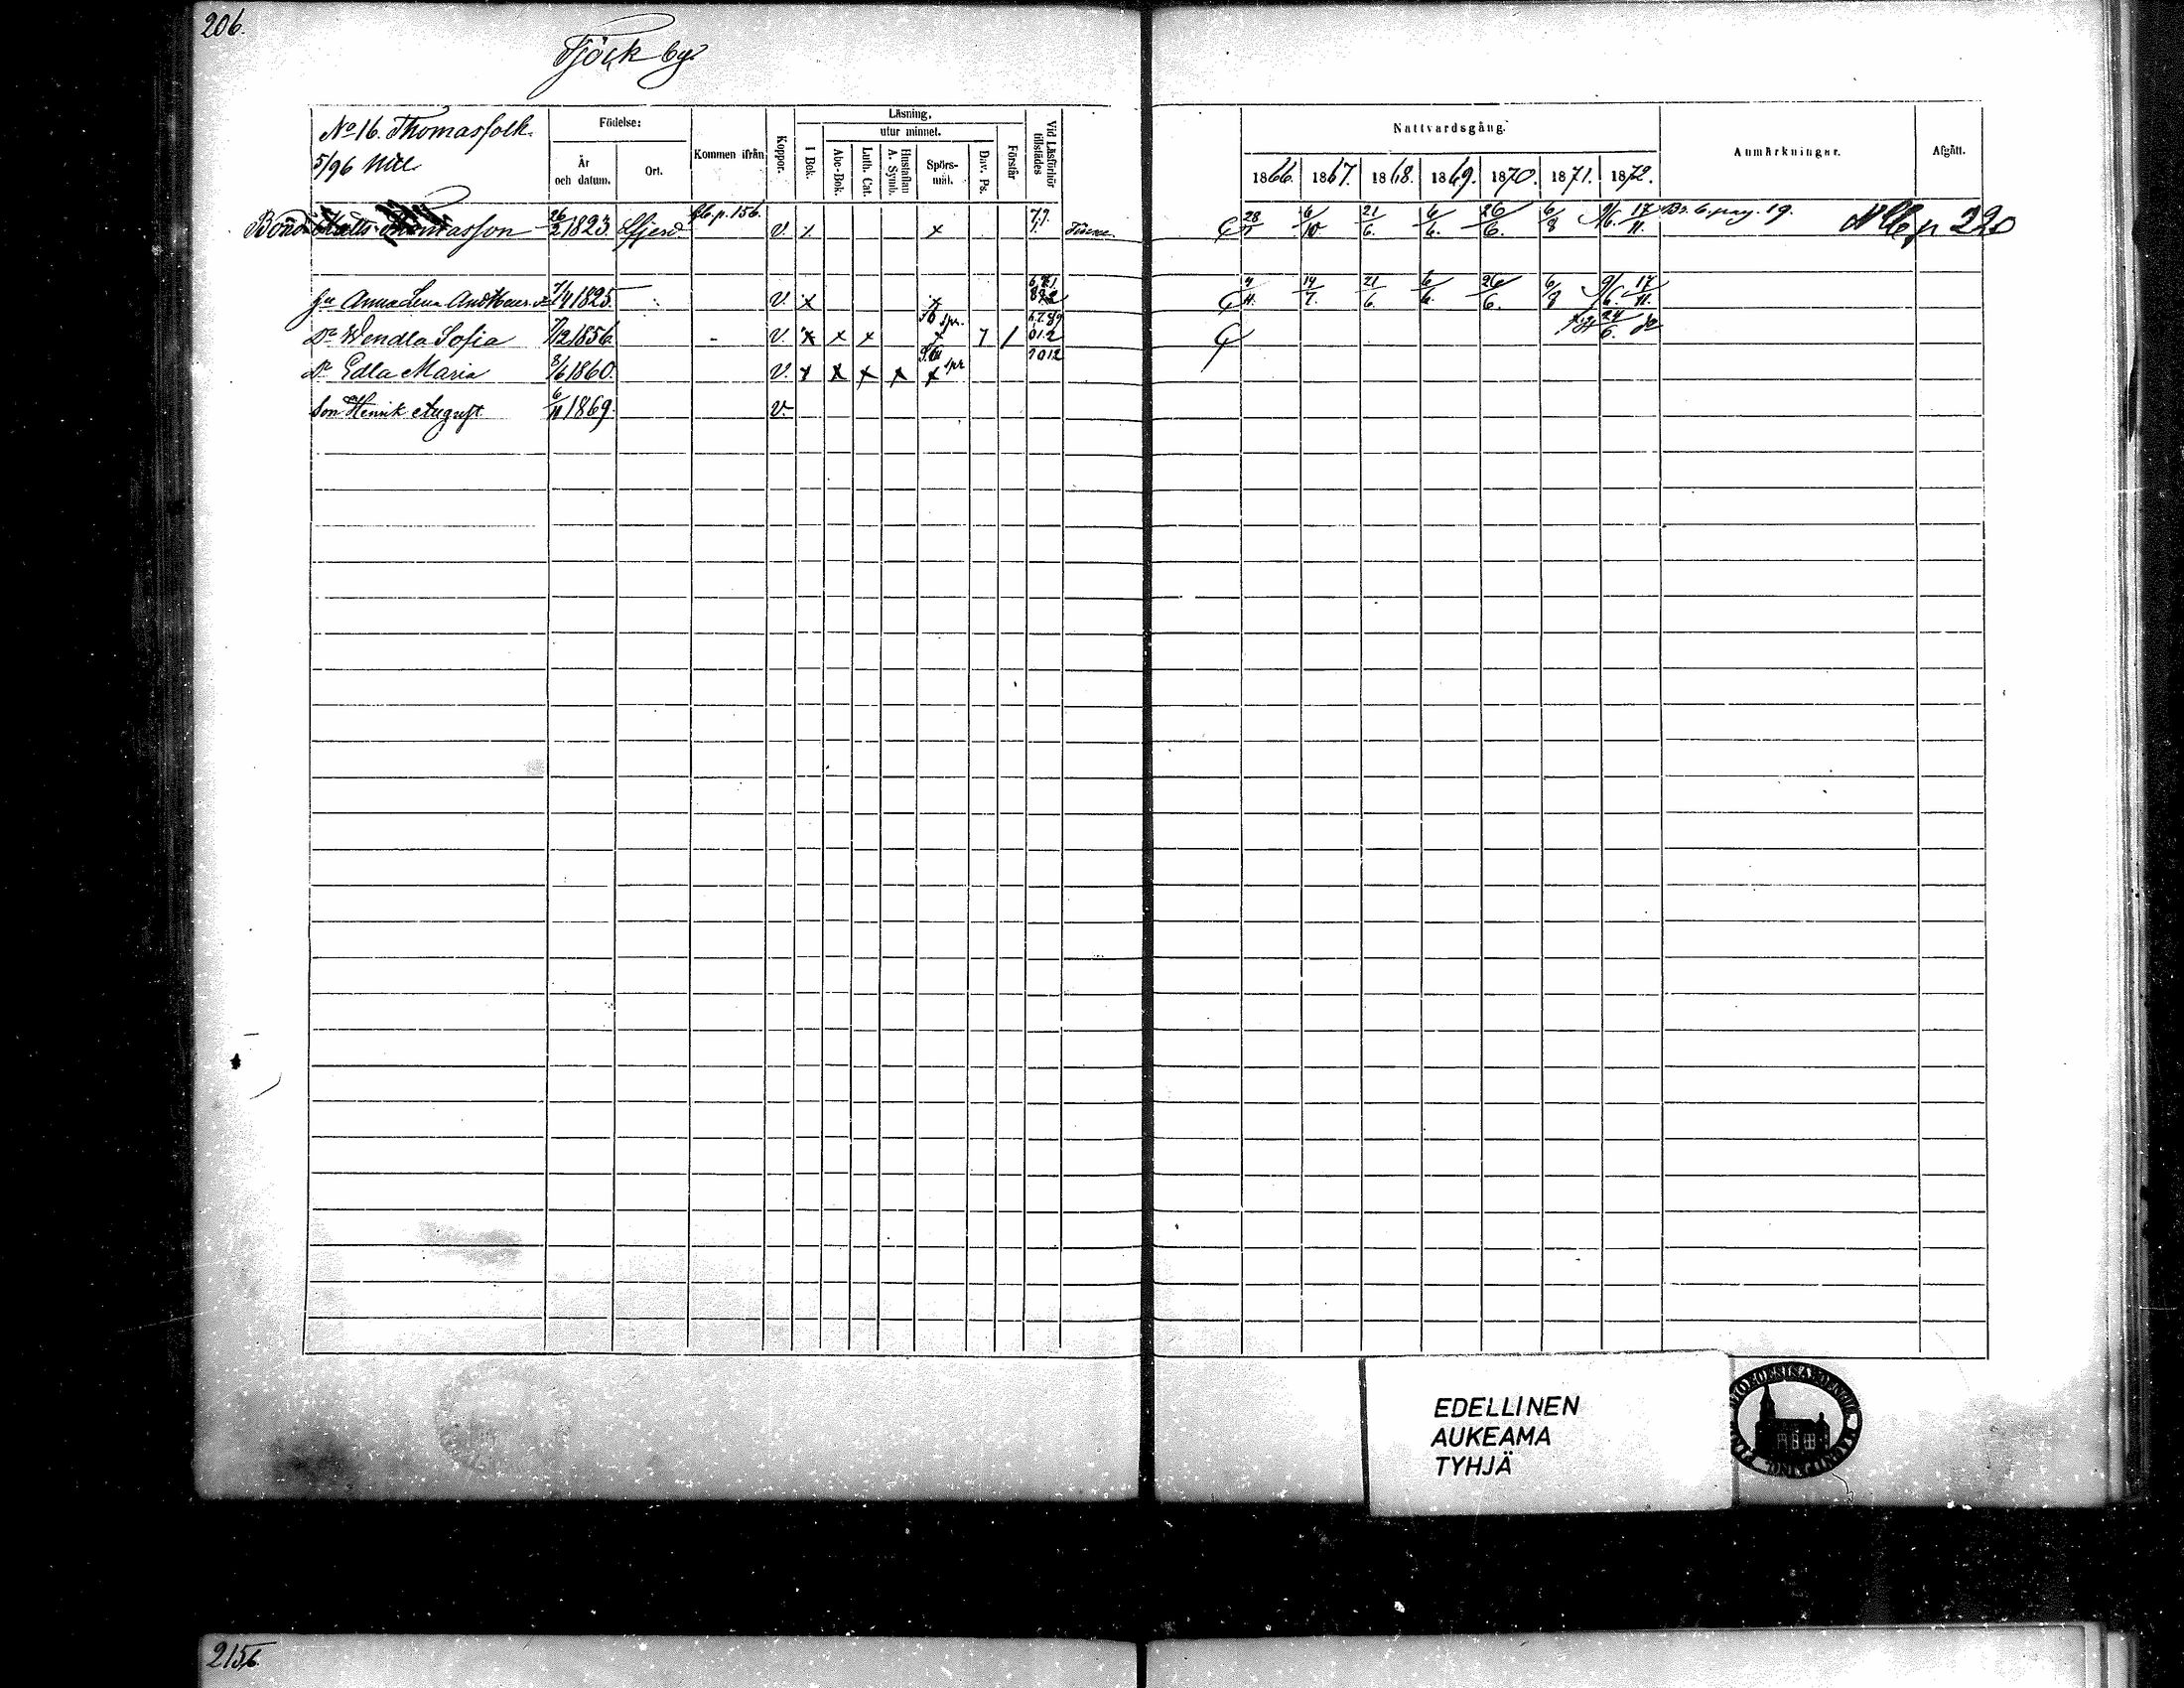 206.
Tjöck by.
No 16. Thomasfolk.
5/96 Mtl.
Födelse:
År och datum.
Ort.
Kommen ifrån
Koppor.
Läsning.
utur minnet.
I Bok.
Abc-Bok.
Luth. Cat.
Hustaflan A. Symb.
Spörs-mål.
Dav. Ps.
Förstår
Vid Läsförhör tillstädes
Nattvardsgång.
1866. 1867. 1868. 1869. 1870. 1871. 1872.
Anmärkningar.
Afgått.
Bond. Matts Thomasson 26/2 1823. Lfjerd lb. p. 156. V. x x 7.7. 28/1 6/10 21/6. 6/6. 26/6. 6/8 9/6. 17/11. Br. b. pag. 19. N Cb p 220
hu Anna Lena And 7/4 1825. V. x x 4/11. 14/7. 21/6. 6/6. 26/6. 6/8 9/6. 17/11.
Dr Wendla Sofia 7/12 1856. - V. x x x x 7 / 24/6.
Dr Edla Maria 8/6 1860. V. x x x x x spr 7012
Son Henrik August 6/11 1869. V.
EDELLINEN
AUKEAMA
TYHJÄ
215,6.